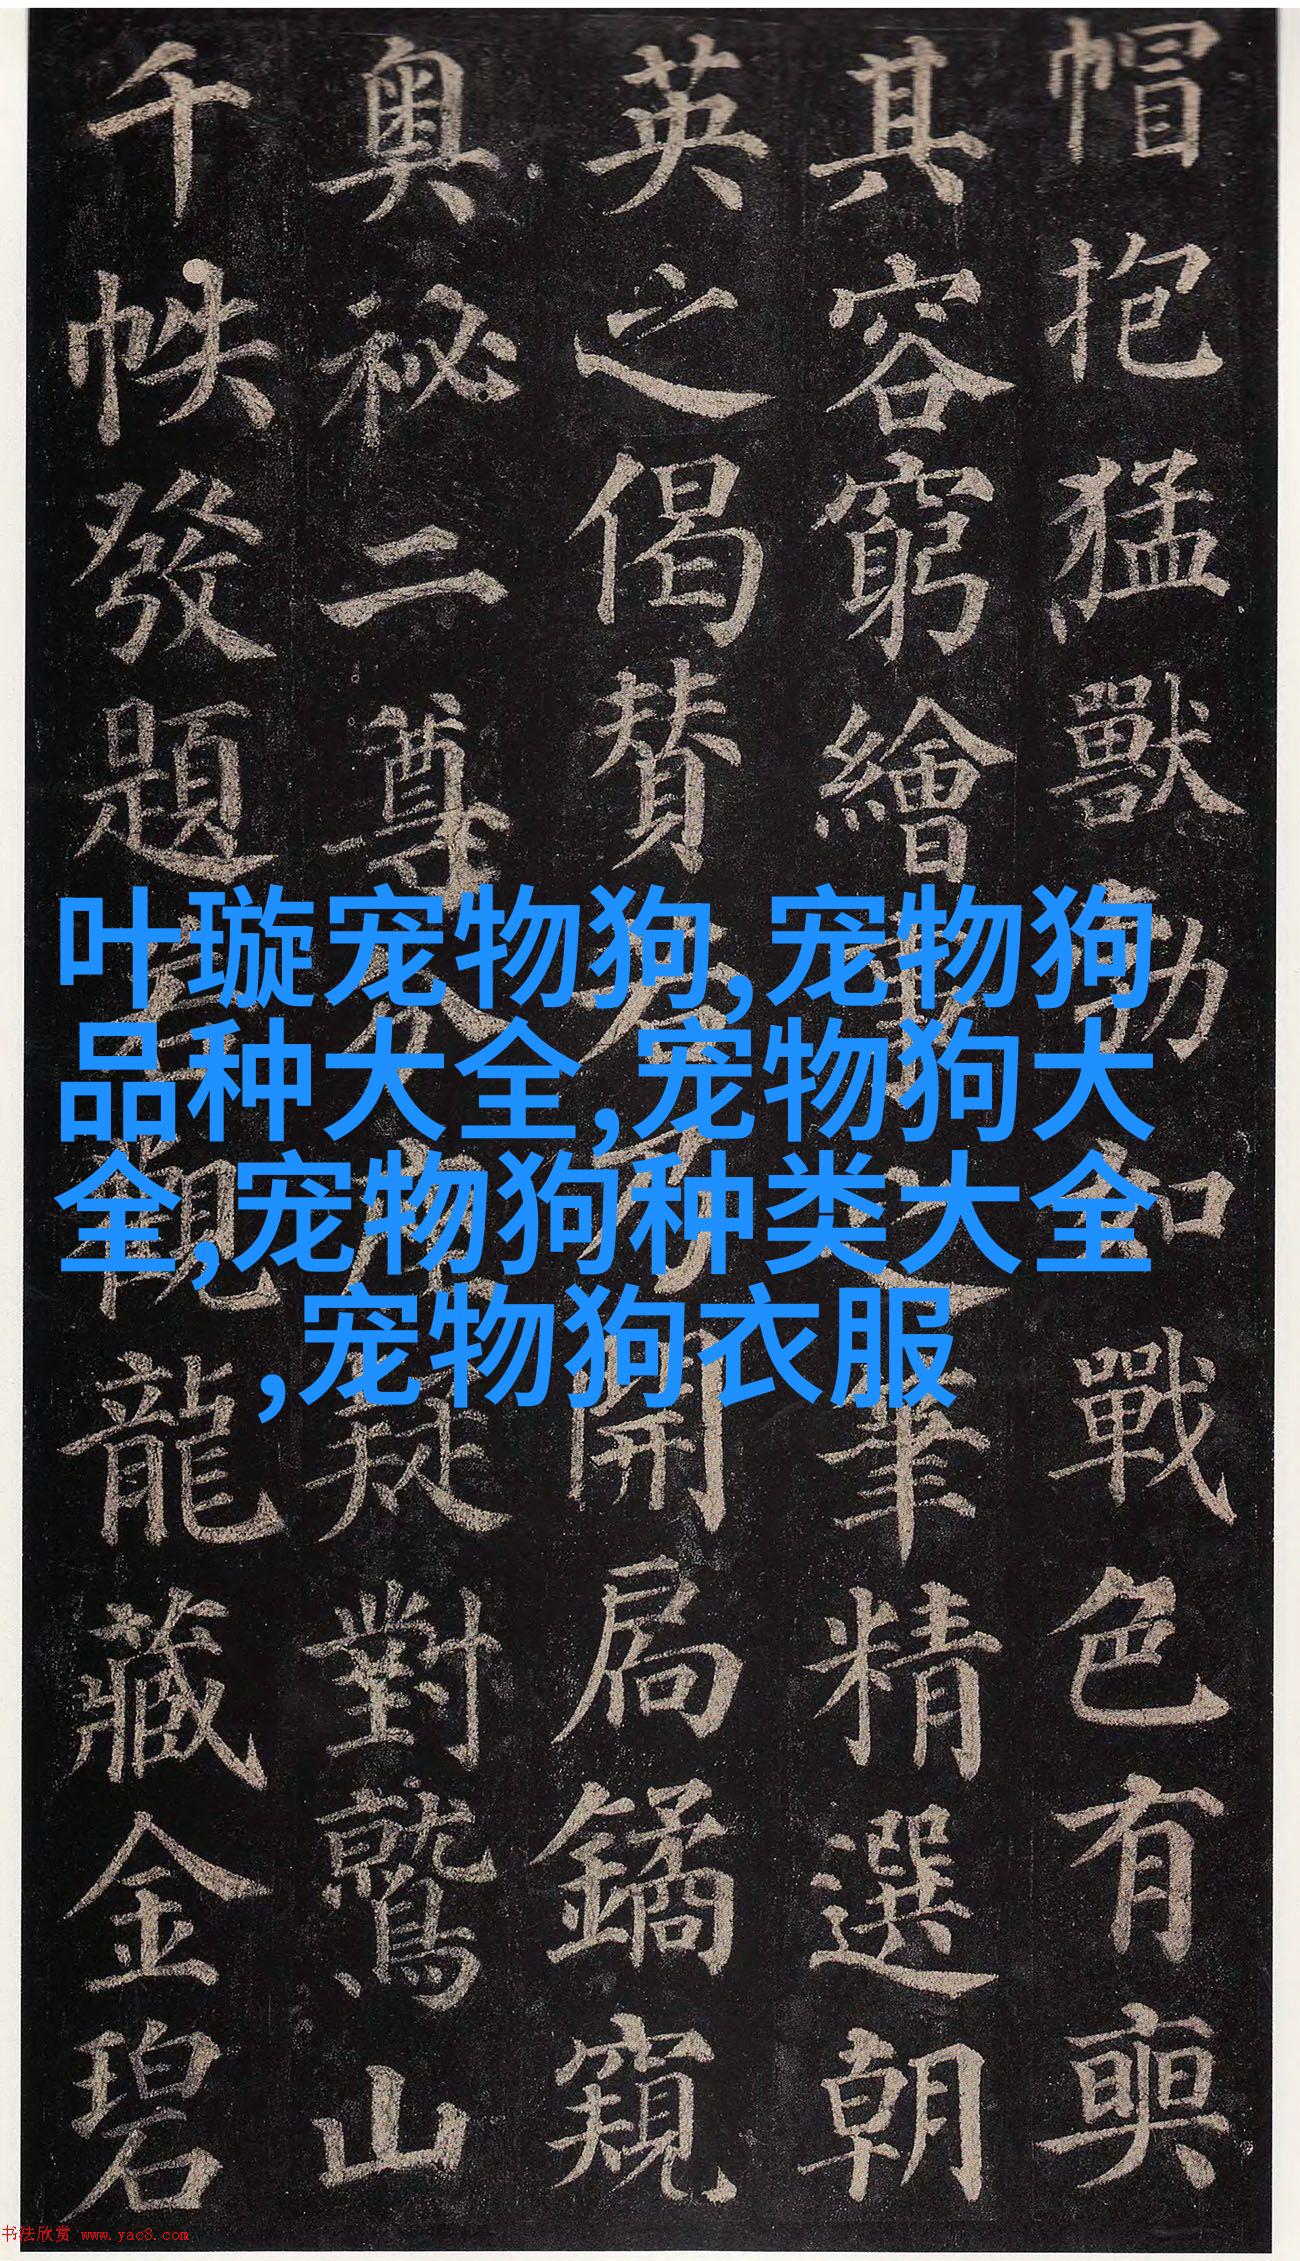 帽抱猛獸勃如戰色有奭
其容窮繪事之筆精選朝
英之偈贊若乃開扃鐍窺
奧祕二尊分座疑對鷲山
千帙發題若觀龍藏金碧
叶璇宠物狗,宠物狗
品种大全,宠物狗大
全,宠物狗种类大全
,宠物狗衣服
书法欣赏 www.yac8.com